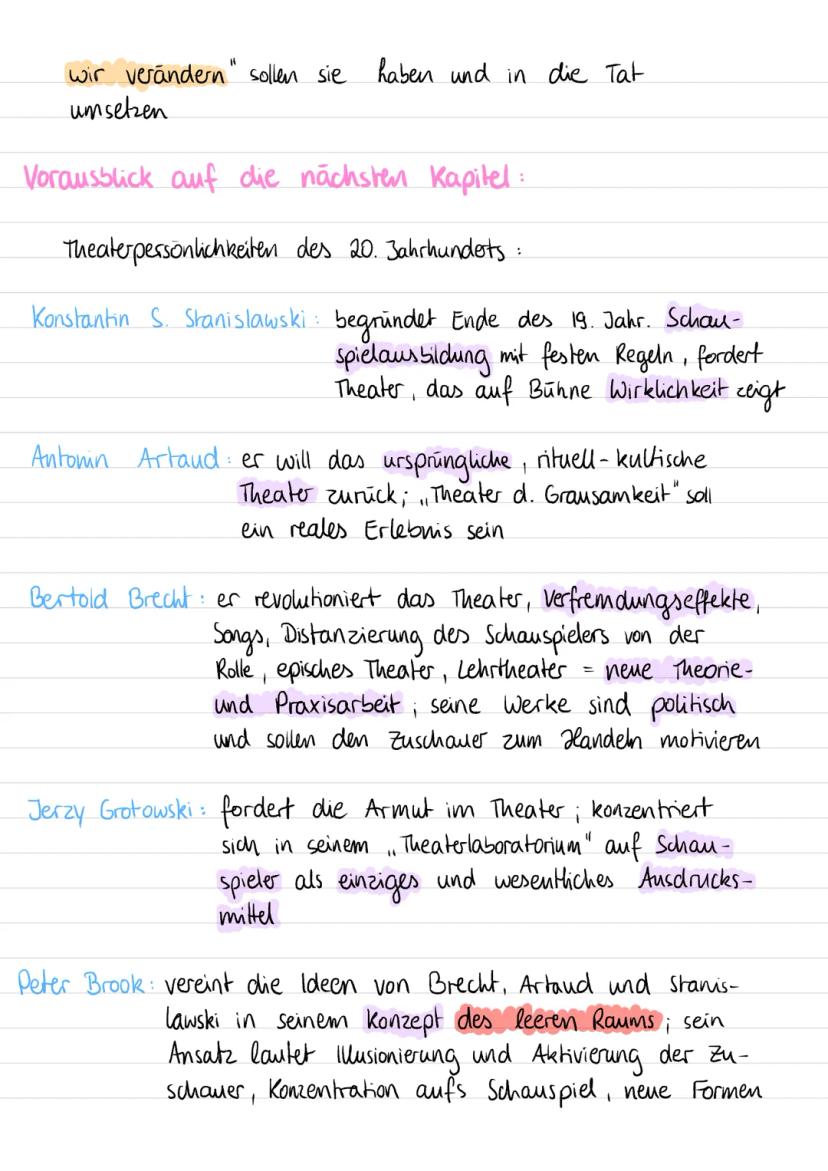 wir verändern" sollen sie haben und in die Tat
umsetzen
Vorausblick auf die nächsten Kapitel:
Theaterpersönlichkeiten des 20. Jahrhundets:
Konstantin S. Stanislawski: begründet Ende des 19. Jahr. Schau-
spielausbildung mit festen Regeln, fordert
Theater, das auf Bühne Wirklichkeit zeigt
Antonin Artaud: er will das ursprüngliche, rituell-kultische
Theater zurück; „Theater d. Grausamkeit" soll
ein reales Erlebnis sein
Bertold Brecht: er revolutioniert das Theater, Verfremdungseffekte,
Songs, Distanzierung des Schauspielers von der
Rolle, episches Theater, Lehrtheater = neue Theorie-
und Praxisarbeit; seine Werke sind politisch
und sollen den Zuschauer zum Handeln motivieren
Jerzy Grotowski: fordert die Armut im Theater; konzentriert
sich in seinem „Theaterlaboratorium" auf Schau-
spieler als einziges und wesentliches Ausdrucks-
mittel
Peter Brook: vereint die Ideen von Brecht, Artaud und Stanis-
lawski in seinem Konzept des leeren Raums; sein
Ansatz lautet Illusionierung und Aktivierung der Zu-
schauer, Konzentration aufs Schauspiel, neue Formen